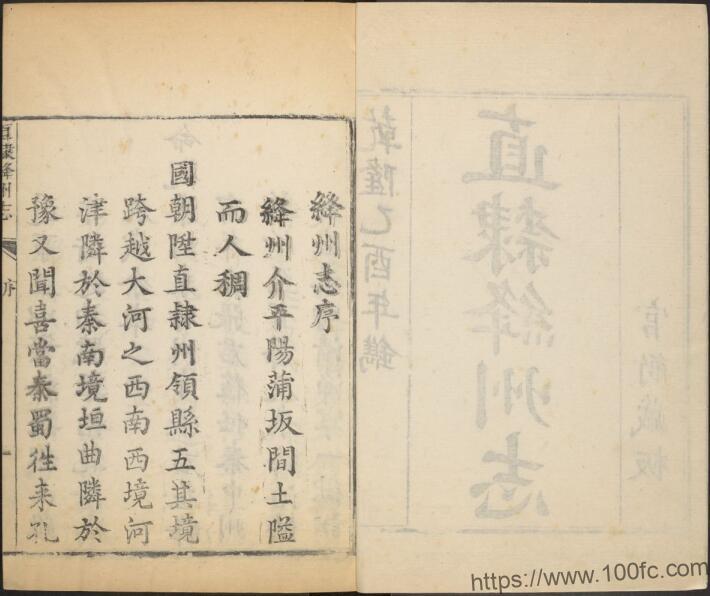 官衙藏板
直隸絳州志
乾隆乙酉年鐫
絳州志序
絳州介平陽蒲坂間土隘
而人稠
國朝陞直隸州領縣五其境
跨越大河之西南西境河
津隣於秦南境垣曲隣於
豫又聞喜當秦蜀徃来孔
直隸絳州志
序
一
https://www.100fc.com